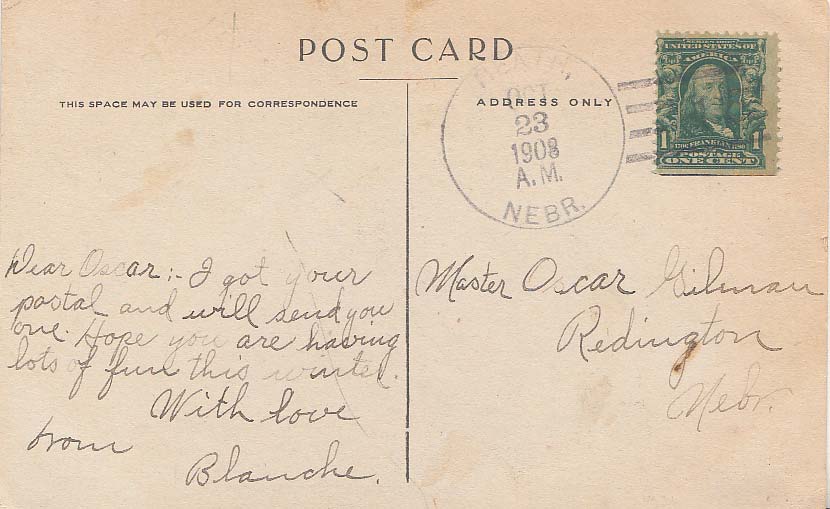 POST CARD
THIS SPACE MAY BE USED FOR CORRESPONDENCE
ADDRESS ONLY
OCT
23
1908
A.M.
NEBR.
SERIES 1902
UNITED STATES OF
AMERICA
1 1706 FRANKLIN 1790 1
POSTAGE
ONE CENT
Dear Oscar:- I got your
postal and will send you
one. Hope you are having
lots of fun this winter.
With love
from
Blanche.
Master Oscar Gilman
Redington
Nebr.